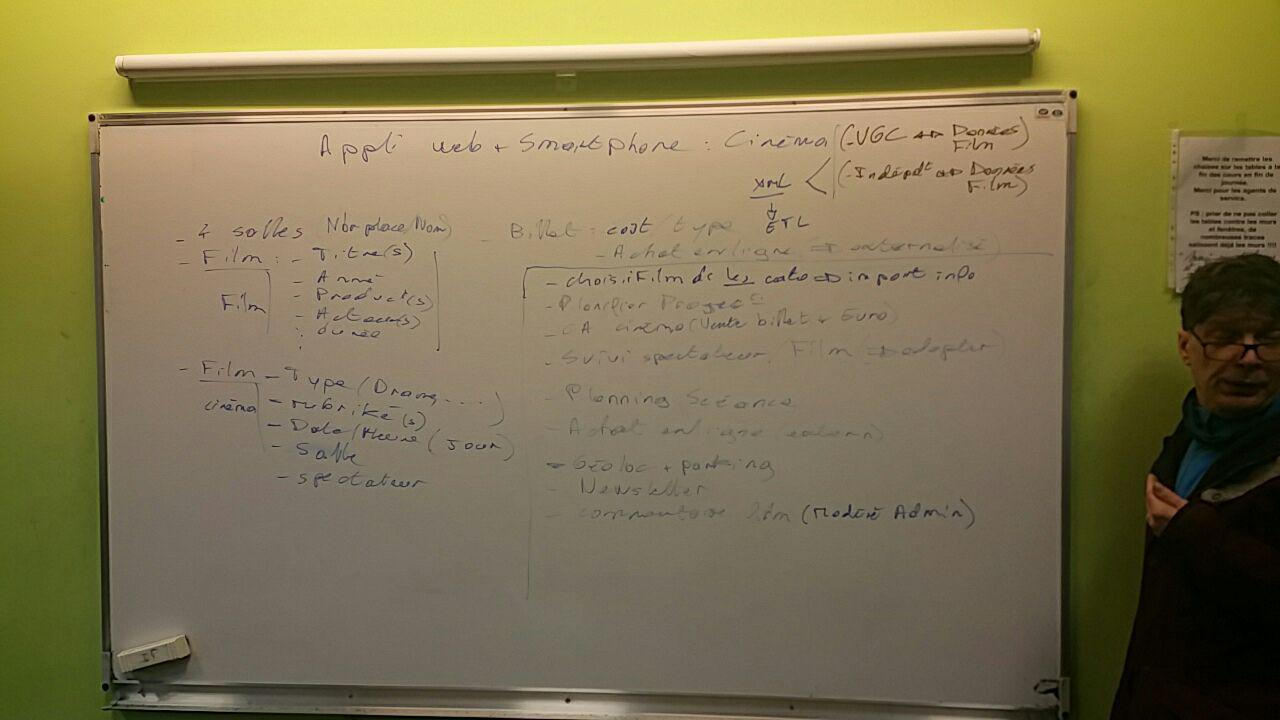 Appli web + Smartphone : Cinéma
(-UGC ⇔ Données Film)
(-Indépdt ⇔ Données Film)
XML
ETL
- 4 salles Nbr place/Nom)
- Film : - Titre(s)
- Année
Film - Product(s)
- Acteur(s)
: durée
- Film - Type (Drame....)
cinéma - rubriké(s)
- Date/Heure (Jour)
- Salle
- spectateur
- Billet : coût / type
- Achat en ligne ⇒ externalisé)
- choisi Film ds les cata ⇒ import info
- Planifier
- CA cinéma (Vente billet + Euro)
- Suivi spectateur / Film ⇒ adapter
- Planning Scéance
- Achat en ligne (extern)
- Géoloc + parking
- Newsletter
- commentaire (Modéré Admin)
IF
Merci de remettre les
chaises sur les tables à la
fin des cours en fin de
journée.
Merci pour les agents de
service.
PS : prier de ne pas coller
les tables contre les murs
et fenêtres, de
nombreuses traces
salissent déjà les murs !!!!